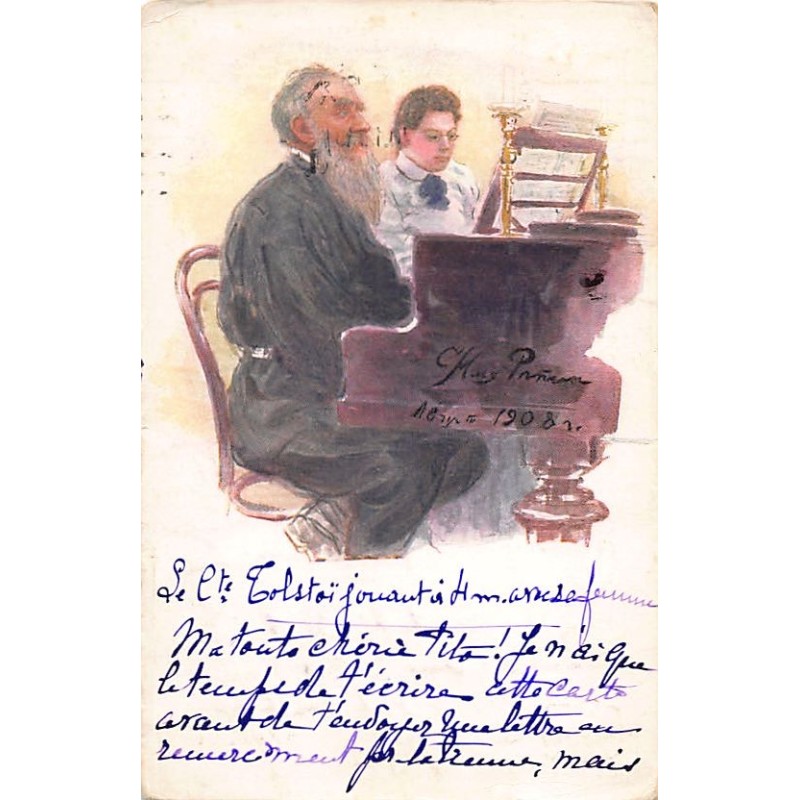 1908 г.
Le Cte Tolstoï jouant à 4 m. avec sa femme
Ma toute chérie Tito! Je n'ai que
le temps de t'écrire cette carte
avant de t'envoyer une lettre en
remerciment pr la tienne, mais